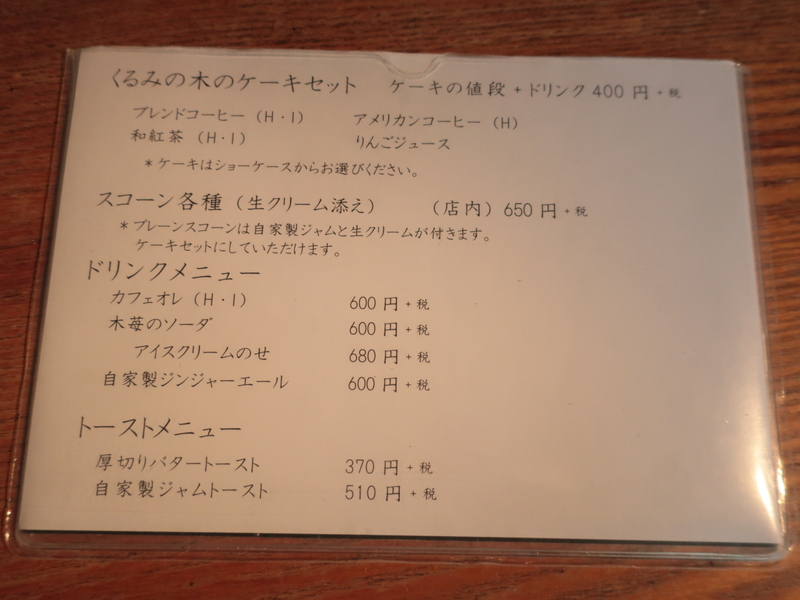 くるみの木のケーキセット　ケーキの値段 + ドリンク 400 円 + 税
ブレンドコーヒー（H・I）　アメリカンコーヒー（H）
和紅茶（H・I）　りんごジュース
＊ケーキはショーケースからお選びください。
スコーン各種（生クリーム添え）　（店内）650 円 + 税
＊プレーンスコーンは自家製ジャムと生クリームが付きます。
ケーキセットにしていただけます。
ドリンクメニュー
カフェオレ（H・I）　600 円 + 税
木苺のソーダ　600 円 + 税
アイスクリームのせ　680 円 + 税
自家製ジンジャーエール　600 円 + 税
トーストメニュー
厚切りバタートースト　370 円 + 税
自家製ジャムトースト　510 円 + 税